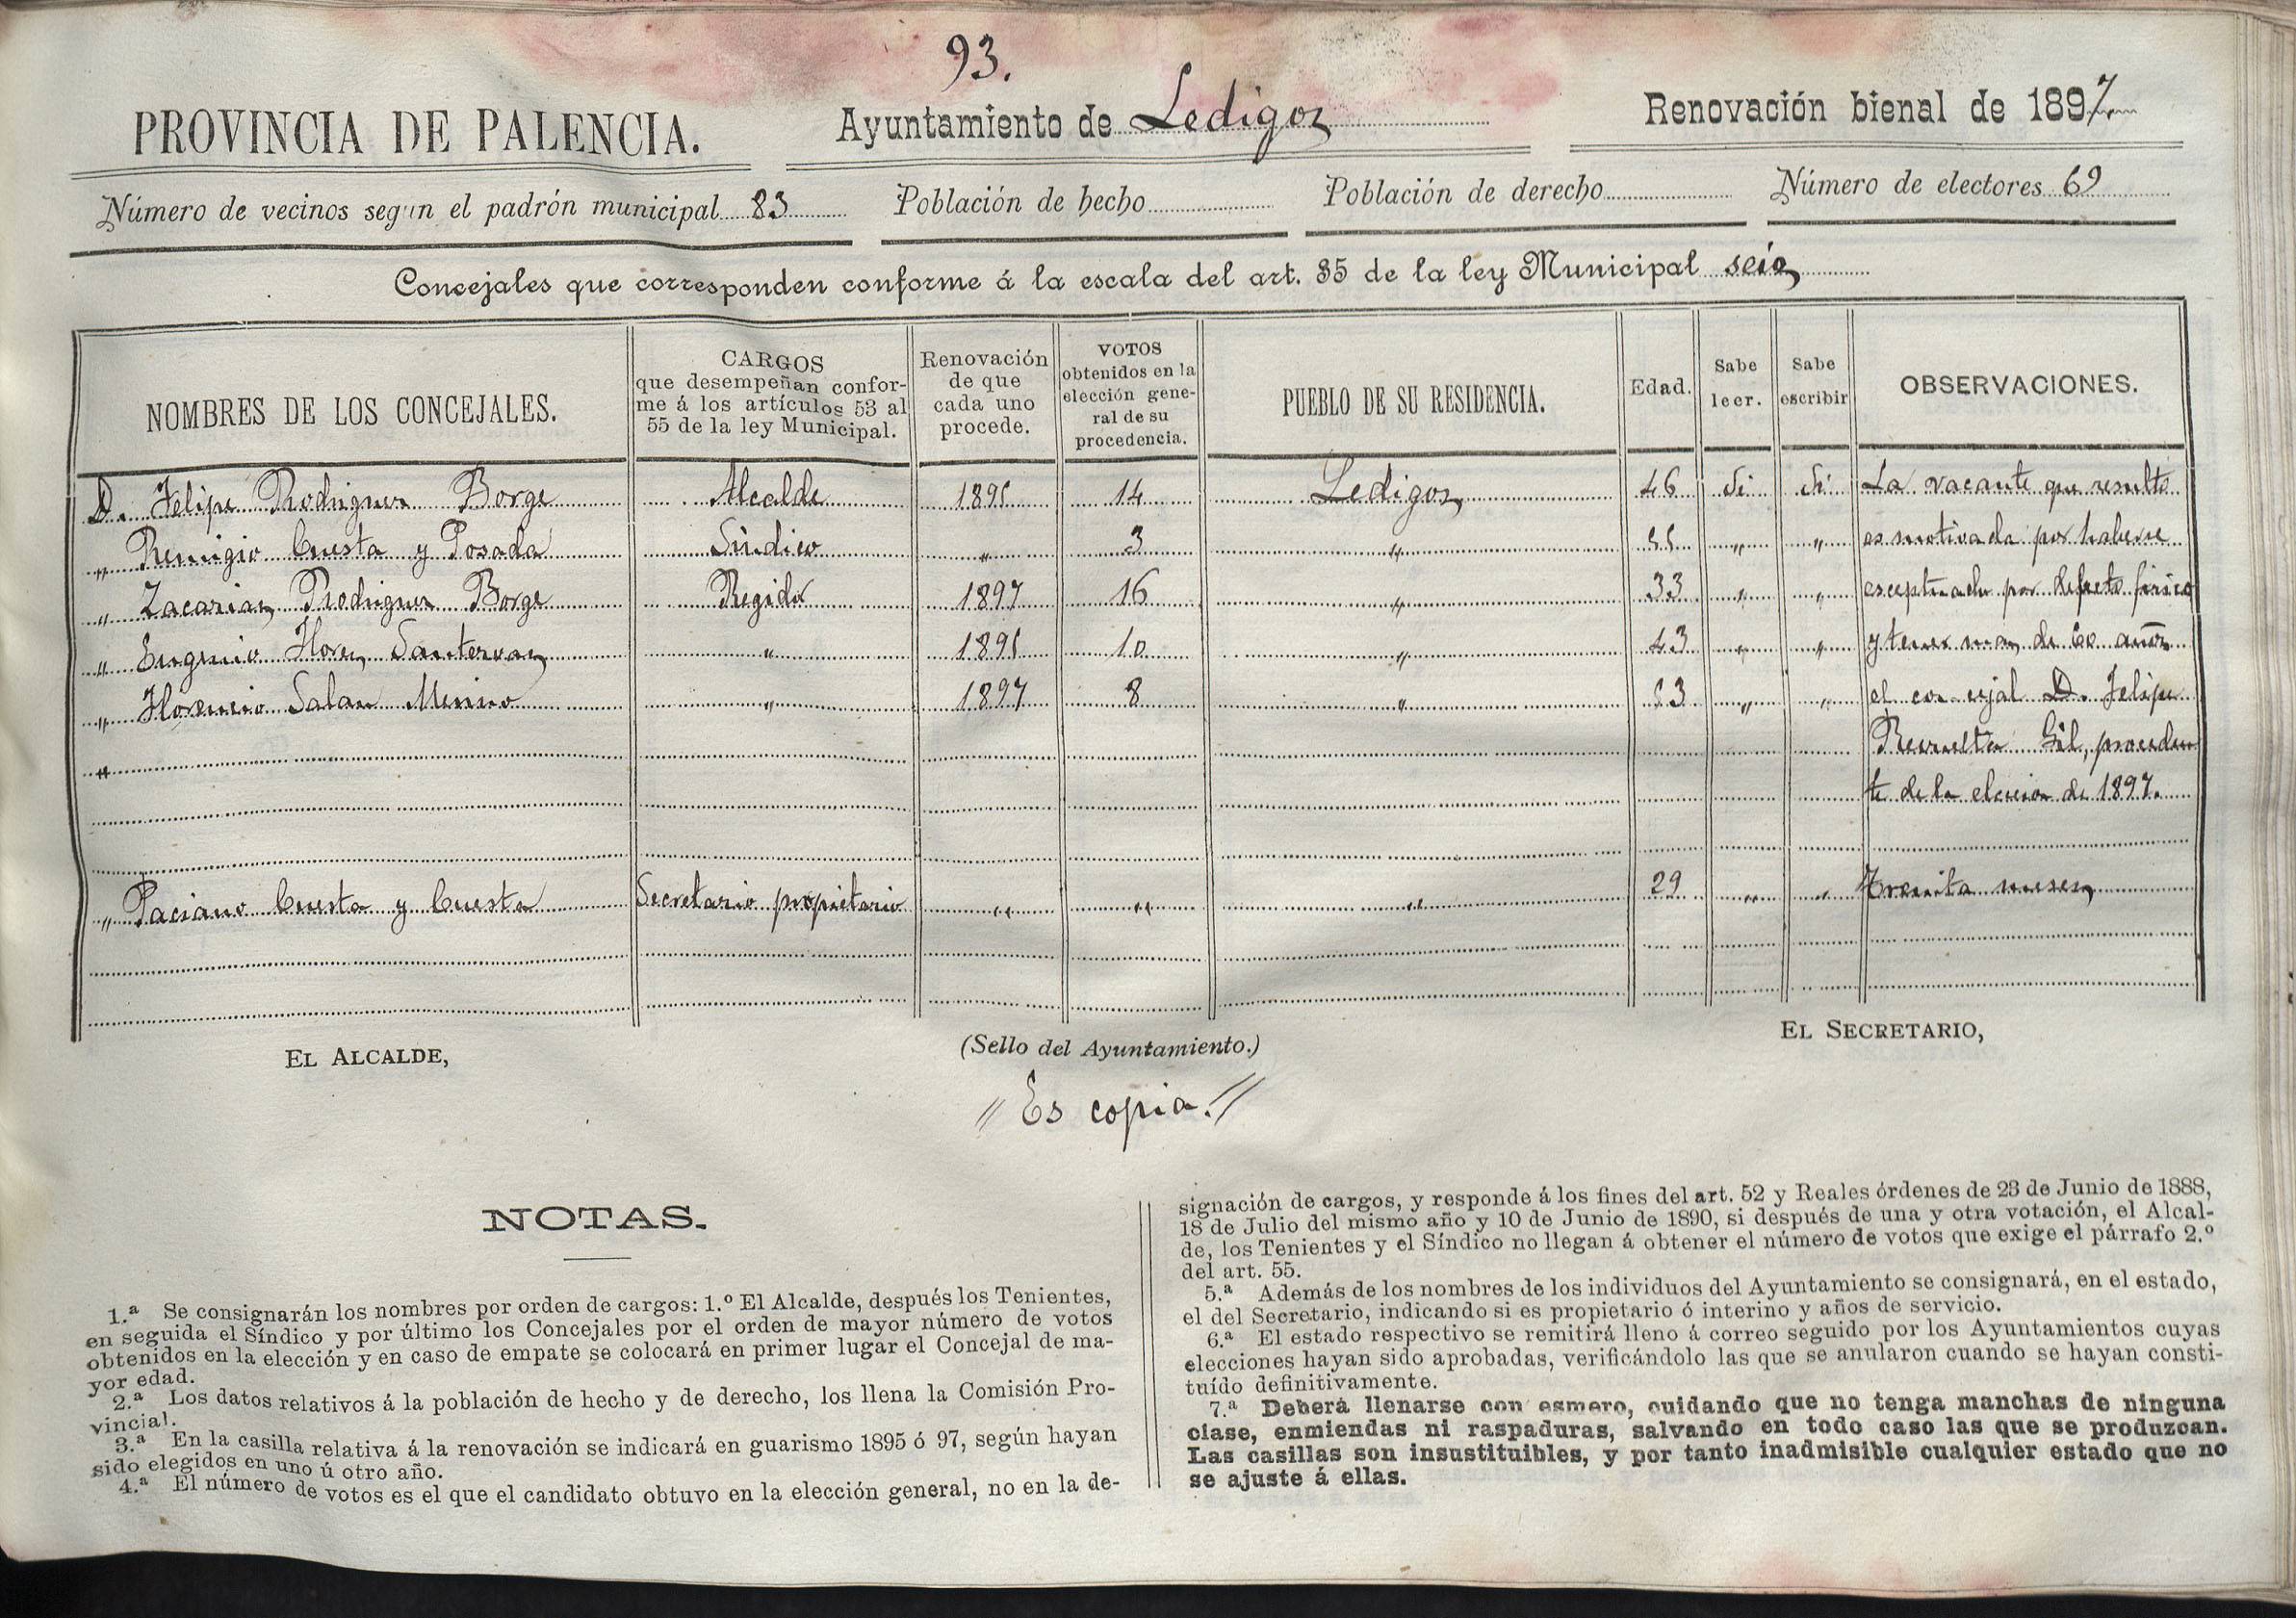 93.
PROVINCIA DE PALENCIA.
Ayuntamiento de Ledigos
Renovación bienal de 1897.
Número de vecinos según el padrón municipal 83
Población de hecho
Población de derecho
Número de electores 69
Concejales que corresponden conforme á la escala del art. 35 de la ley Municipal seis
NOMBRES DE LOS CONCEJALES.
CARGOS
que desempeñan confor-
me á los artículos 53 al
55 de la ley Municipal.
Renovación
de que
cada uno
procede.
VOTOS
obtenidos en la
elección gene-
ral de su
procedencia.
PUEBLO DE SU RESIDENCIA.
Edad.
Sabe
leer.
Sabe
escribir
OBSERVACIONES.
D. Felipe Rodriguez Borge Alcalde 1895 14 Ledigos 46 Si Si La vacante que resulta
„ Remigio Cuesta y Posada Sindico „ 3 „ 55 „ „ es motivada por haberse
„ Zacarias Rodriguez Borge Regidor 1897 16 „ 33 „ „ esceptuado por defecto fisico
„ Eugenio Flores Santervas „ 1895 10 „ 43 „ „ y tener mas de 60 años
„ Florencio Salan Merino „ 1897 8 „ 53 „ „ el concejal D. Felipe
„ Revuelta Gil, proceden
te de la eleccion de 1897.
„ Paciano Cuesta y Cuesta Secretario propietario „ „ „ 29 „ „ Treinta meses
EL ALCALDE,
(Sello del Ayuntamiento.)
EL SECRETARIO,
// Es copia. //
NOTAS.
1.ª Se consignarán los nombres por orden de cargos: 1.º El Alcalde, después los Tenientes,
en seguida el Síndico y por último los Concejales por el orden de mayor número de votos
obtenidos en la elección y en caso de empate se colocará en primer lugar el Concejal de ma-
yor edad.
2.ª Los datos relativos á la población de hecho y de derecho, los llena la Comisión Pro-
vincial.
3.ª En la casilla relativa á la renovación se indicará en guarismo 1895 ó 97, según hayan
sido elegidos en uno ú otro año.
4.ª El número de votos es el que el candidato obtuvo en la elección general, no en la de-
signación de cargos, y responde á los fines del art. 52 y Reales órdenes de 23 de Junio de 1888,
18 de Julio del mismo año y 10 de Junio de 1890, si después de una y otra votación, el Alcal-
de, los Tenientes y el Síndico no llegan á obtener el número de votos que exige el párrafo 2.º
del art. 55.
5.ª Además de los nombres de los individuos del Ayuntamiento se consignará, en el estado,
el del Secretario, indicando si es propietario ó interino y años de servicio.
6.ª El estado respectivo se remitirá lleno á correo seguido por los Ayuntamientos cuyas
elecciones hayan sido aprobadas, verificándolo las que se anularon cuando se hayan consti-
tuído definitivamente.
7.ª Deberá llenarse con esmero, cuidando que no tenga manchas de ninguna
clase, enmiendas ni raspaduras, salvando en todo caso las que se produzcan.
Las casillas son insustituibles, y por tanto inadmisible cualquier estado que no
se ajuste á ellas.